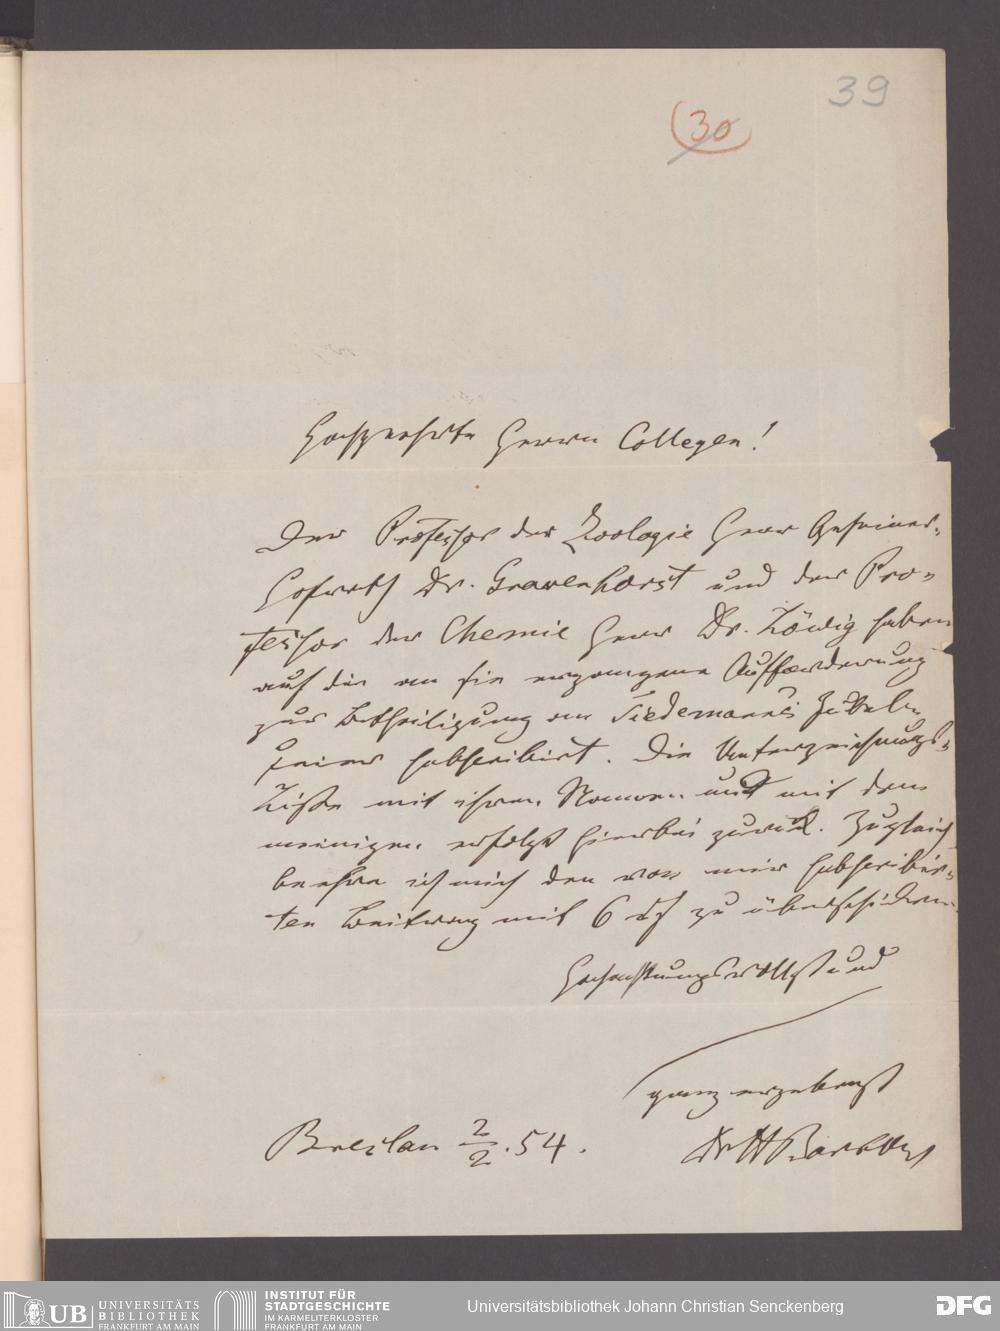 39
30
Hochgeehrte Herren Collegen!
Der Professor der Zoologie Herr Geheimer-
Hofrath Dr. Gravenhorst und der Pro-
fessor der Chemie Herr Dr. Löwig haben
auf die an sie ergangene Aufforderung
zur Betheiligung an Tiedemann's Jubel-
feier subscribirt. Die Unterzeichnungs-
Liste mit ihren Namen und mit dem
meinigen erfolgt hierbei zurück. Zugleich
beehre ich mich den von mir subscribir-
ten Beitrag mit 6 rf zu überschicken.
Hochachtungsvollst und
ganz ergebenst
Breslau 2/2. 54. Dr H Barkow
UB UNIVERSITÄTS
BIBLIOTHEK
FRANKFURT AM MAIN
INSTITUT FÜR
STADTGESCHICHTE
IM KARMELITERKLOSTER
FRANKFURT AM MAIN
Universitätsbibliothek Johann Christian Senckenberg
DFG